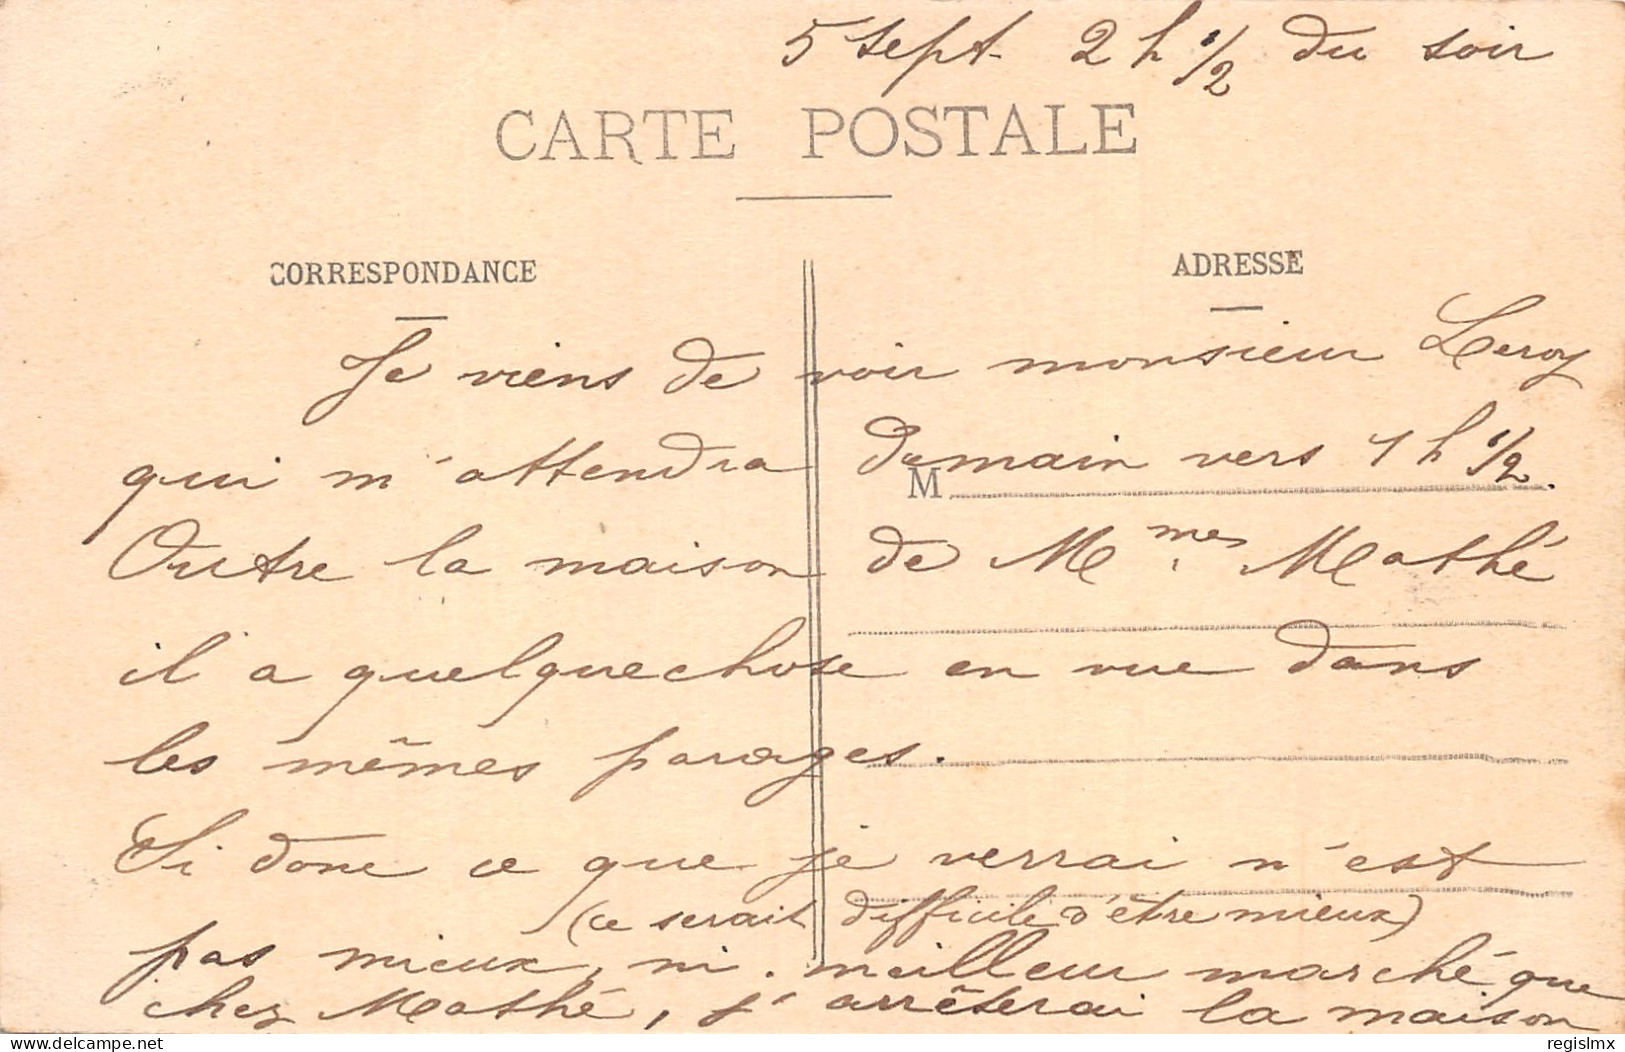 5 sept. 2 h 1/2 du soir
CARTE POSTALE
CORRESPONDANCE
ADRESSE
Je viens de voir monsieur Leroy
qui m'attendra demain vers 1 h 1/2.
M
Outre la maison de Mmes Mathé
il a quelquechose en vue dans
les mêmes parages.
Si donc ce que je verrai n'est
(ce serait difficile d'être mieux)
pas mieux, ni meilleur marché que
chez Mathé, j'arrêterai la maison
delcampe.net
regislmx